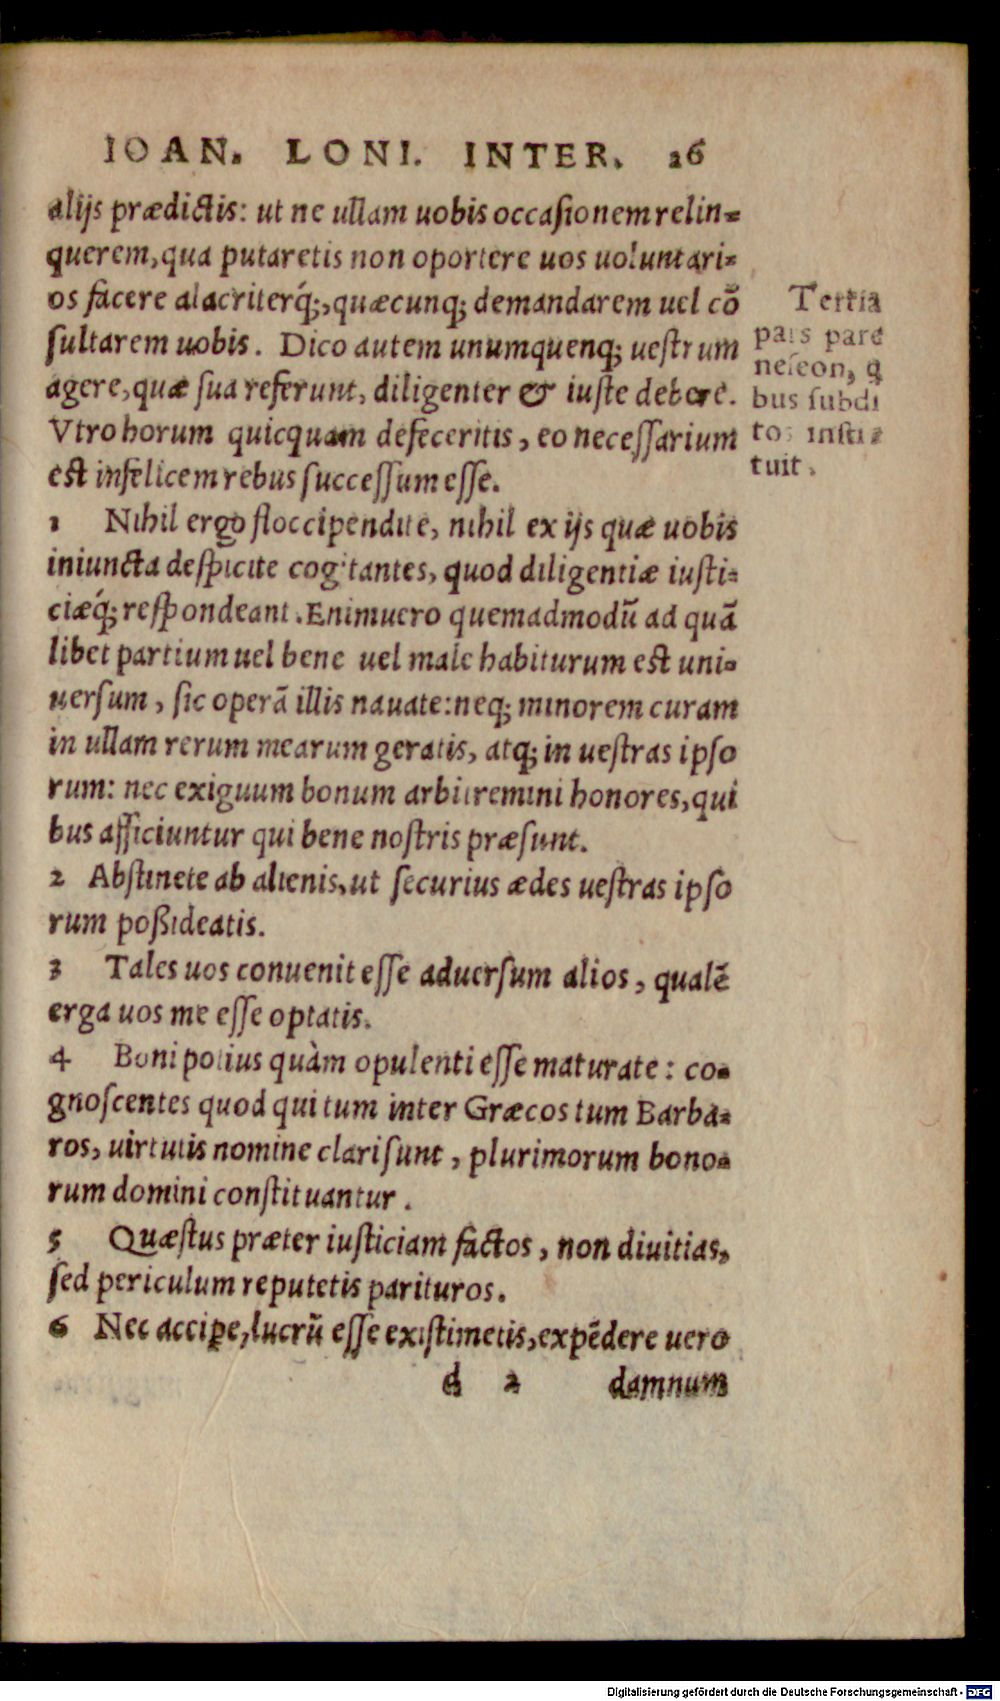 IOAN. LONI. INTER. 26
alijs prædictis: ut ne ullam uobis occasionem relin=
querem, qua putaretis non oportere uos uoluntari=
os facere alacriterq́;, quæcunq; demandarem uel cō
sultarem uobis. Dico autem unumquenq; uestrum
agere, quæ sua referunt, diligenter & iuste debere.
Vtro horum quicquam defeceritis, eo necessarium
est infelicem rebus successum esse.
Tertia
pars pare
neseon, q
bus subdi
tos insti=
tuit.
1 Nihil ergo floccipendite, nihil ex ijs quæ uobis
iniuncta despicite cogitantes, quod diligentiæ iusti=
ciæq́; respondeant. Enimuero quemadmodū ad quā
libet partium uel bene uel male habiturum est uni=
uersum, sic operā illis nauate: neq; minorem curam
in ullam rerum mearum geratis, atq; in uestras ipso
rum: nec exiguum bonum arbitremini honores, qui
bus afficiuntur qui bene nostris præsunt.
2 Abstinete ab alienis, ut securius ædes uestras ipso
rum poßideatis.
3 Tales uos conuenit esse aduersum alios, qualē
erga uos me esse optatis.
4 Boni potius quàm opulenti esse maturate: co=
gnoscentes quod qui tum inter Græcos tum Barba=
ros, uirtutis nomine clari sunt, plurimorum bono=
rum domini constituantur.
5 Quæstus præter iusticiam factos, non diuitias,
sed periculum reputetis parituros.
6 Nec accipe, lucrū esse existimetis, expēdere uero
d 2 damnum
Digitalisierung gefördert durch die Deutsche Forschungsgemeinschaft - DFG